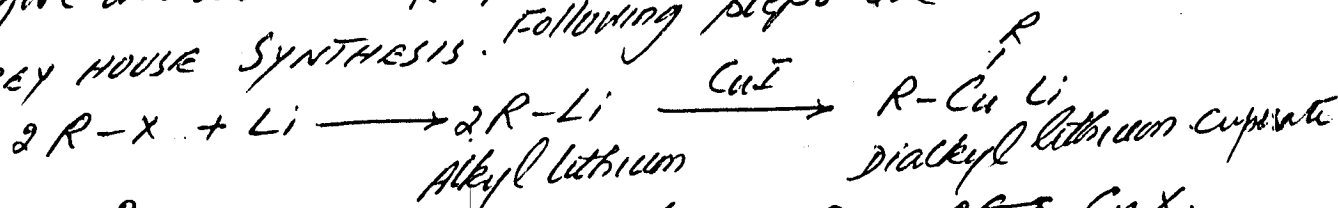 EY HOUSE SYNTHESIS. Following steps
R
2 R-X + Li → 2R-Li CuI → R-Cu Li
Alkyl lithium Dialkyl lithium cuprate
CuX